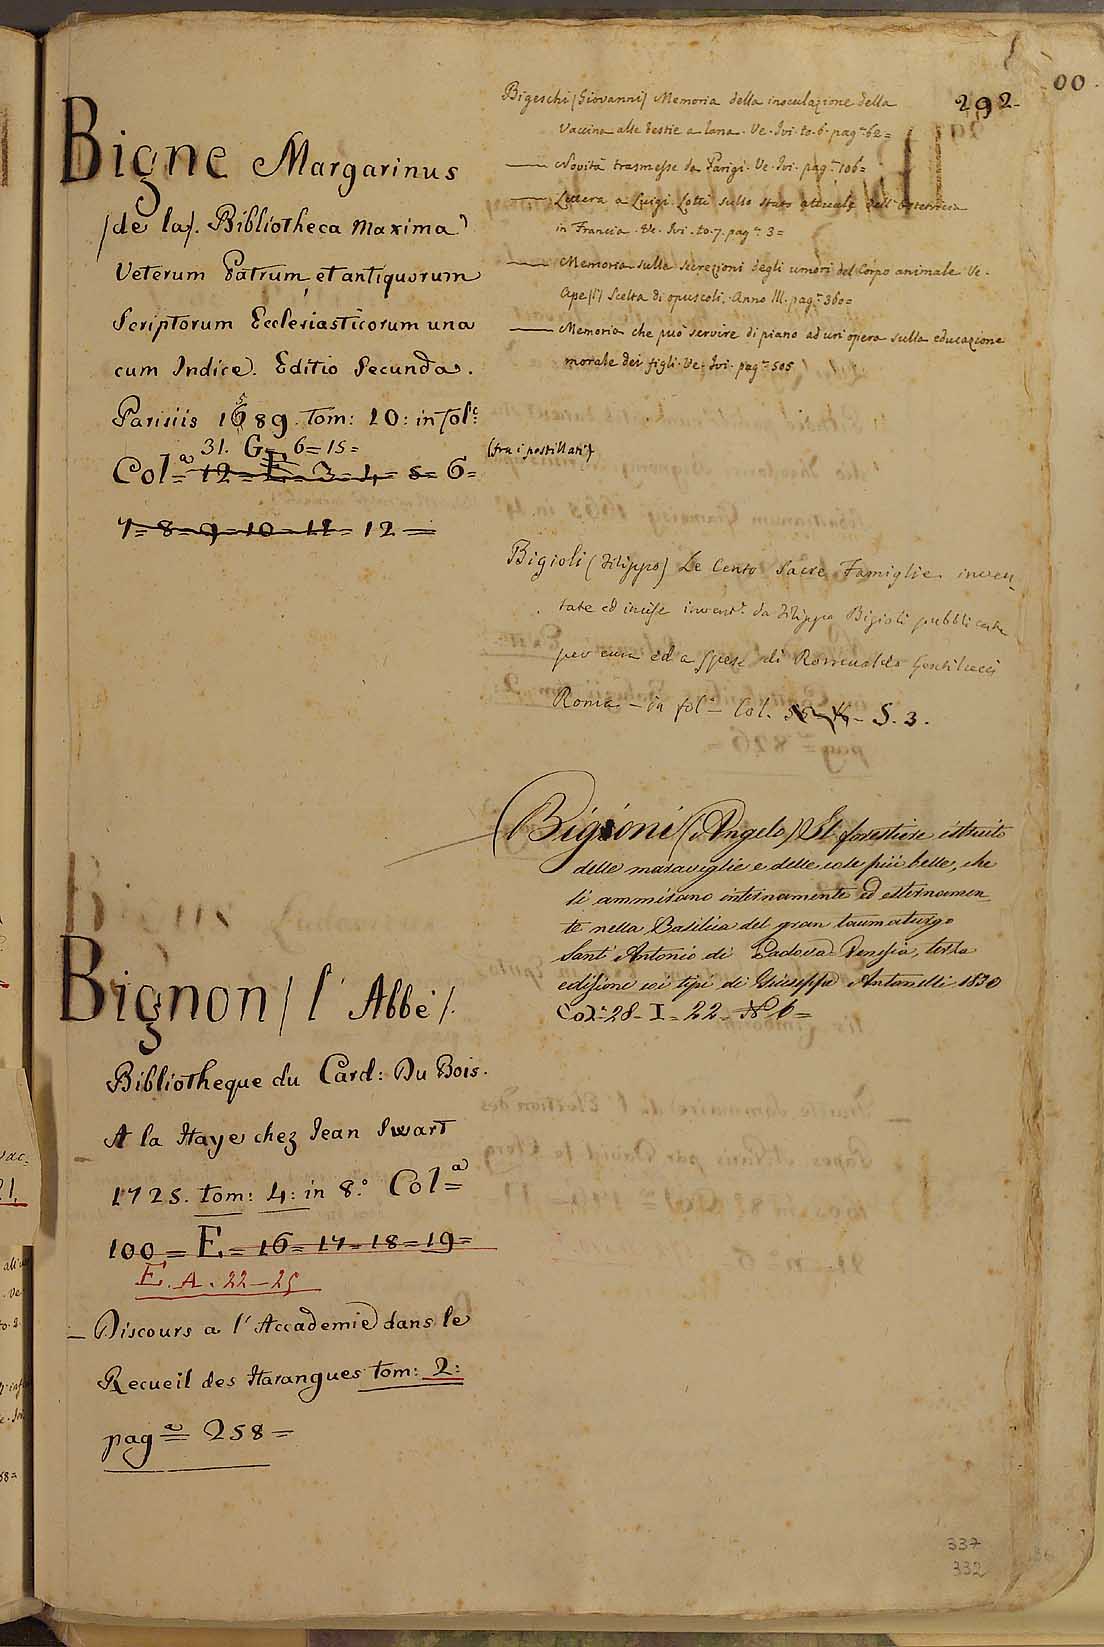 292.
00.
Bigne Margarinus
/de la/. Bibliotheca Maxima
Veterum Patrum, et antiquorum
Scriptorum Ecclesiasticorum una
cum Indice. Editio Secunda.
Parisiis 1689. tom: 10: in fol.º
31. G= 6=15=
Col=ª 12= E= 3=4= 5= 6=
7= 8= 9=10=11= 12=
Bignon / l' Abbé /.
Bibliotheque du Card: Du Bois.
A la Haye chez Jean Swart
1725. tom: 4: in 8.º Col=ª
100= E= 16= 17=18=19=
E. A. 22-25
— Discours a l'Accademie dans le
Recueil des Harangues tom: 2:
pagª= 258=
Bigeschi (Giovanni) Memoria della inoculazione della
Vaccina alle bestie a lana. Ve. Ivi. to. 6. pag.ª 62=
—— Novità trasmesse da Parigi. Ve. Ivi. pag.ª 106=
—— Lettera a Luigi Lotti sullo stato attuale dell'Ostetricia
in Francia. Ve. Ivi. to. 7. pag.ª 3=
—— Memoria sulla secrezioni degli umori del Corpo animale Ve.
Ape (l') Scelta di opuscoli. Anno III. pag.ª 360=
—— Memoria che può servire di piano ad un'opera sulla educazione
morale dei figli. Ve. Ivi. pag.ª 505
(fra i postillati)
Bigioli (Filippo) Le Cento Sacre Famiglie inven-
tate ed incise da Filippo Bigioli pubblicate
per cura ed a spese di Romualdo Gentilucci
Roma - in folº - Col. S. 3.
Bigioni (Angelo) Il forestiere istruito
delle maraviglie e delle cose più belle, che
si ammirano internamente ed esternamen
te nella Basilica del gran taumaturgo
Sant'Antonio di Padova. Venezia, terza
edizione coi tipi di Giuseppe Antonelli 1830
Col.ª 28- I= 22- Nº 6=
337
332